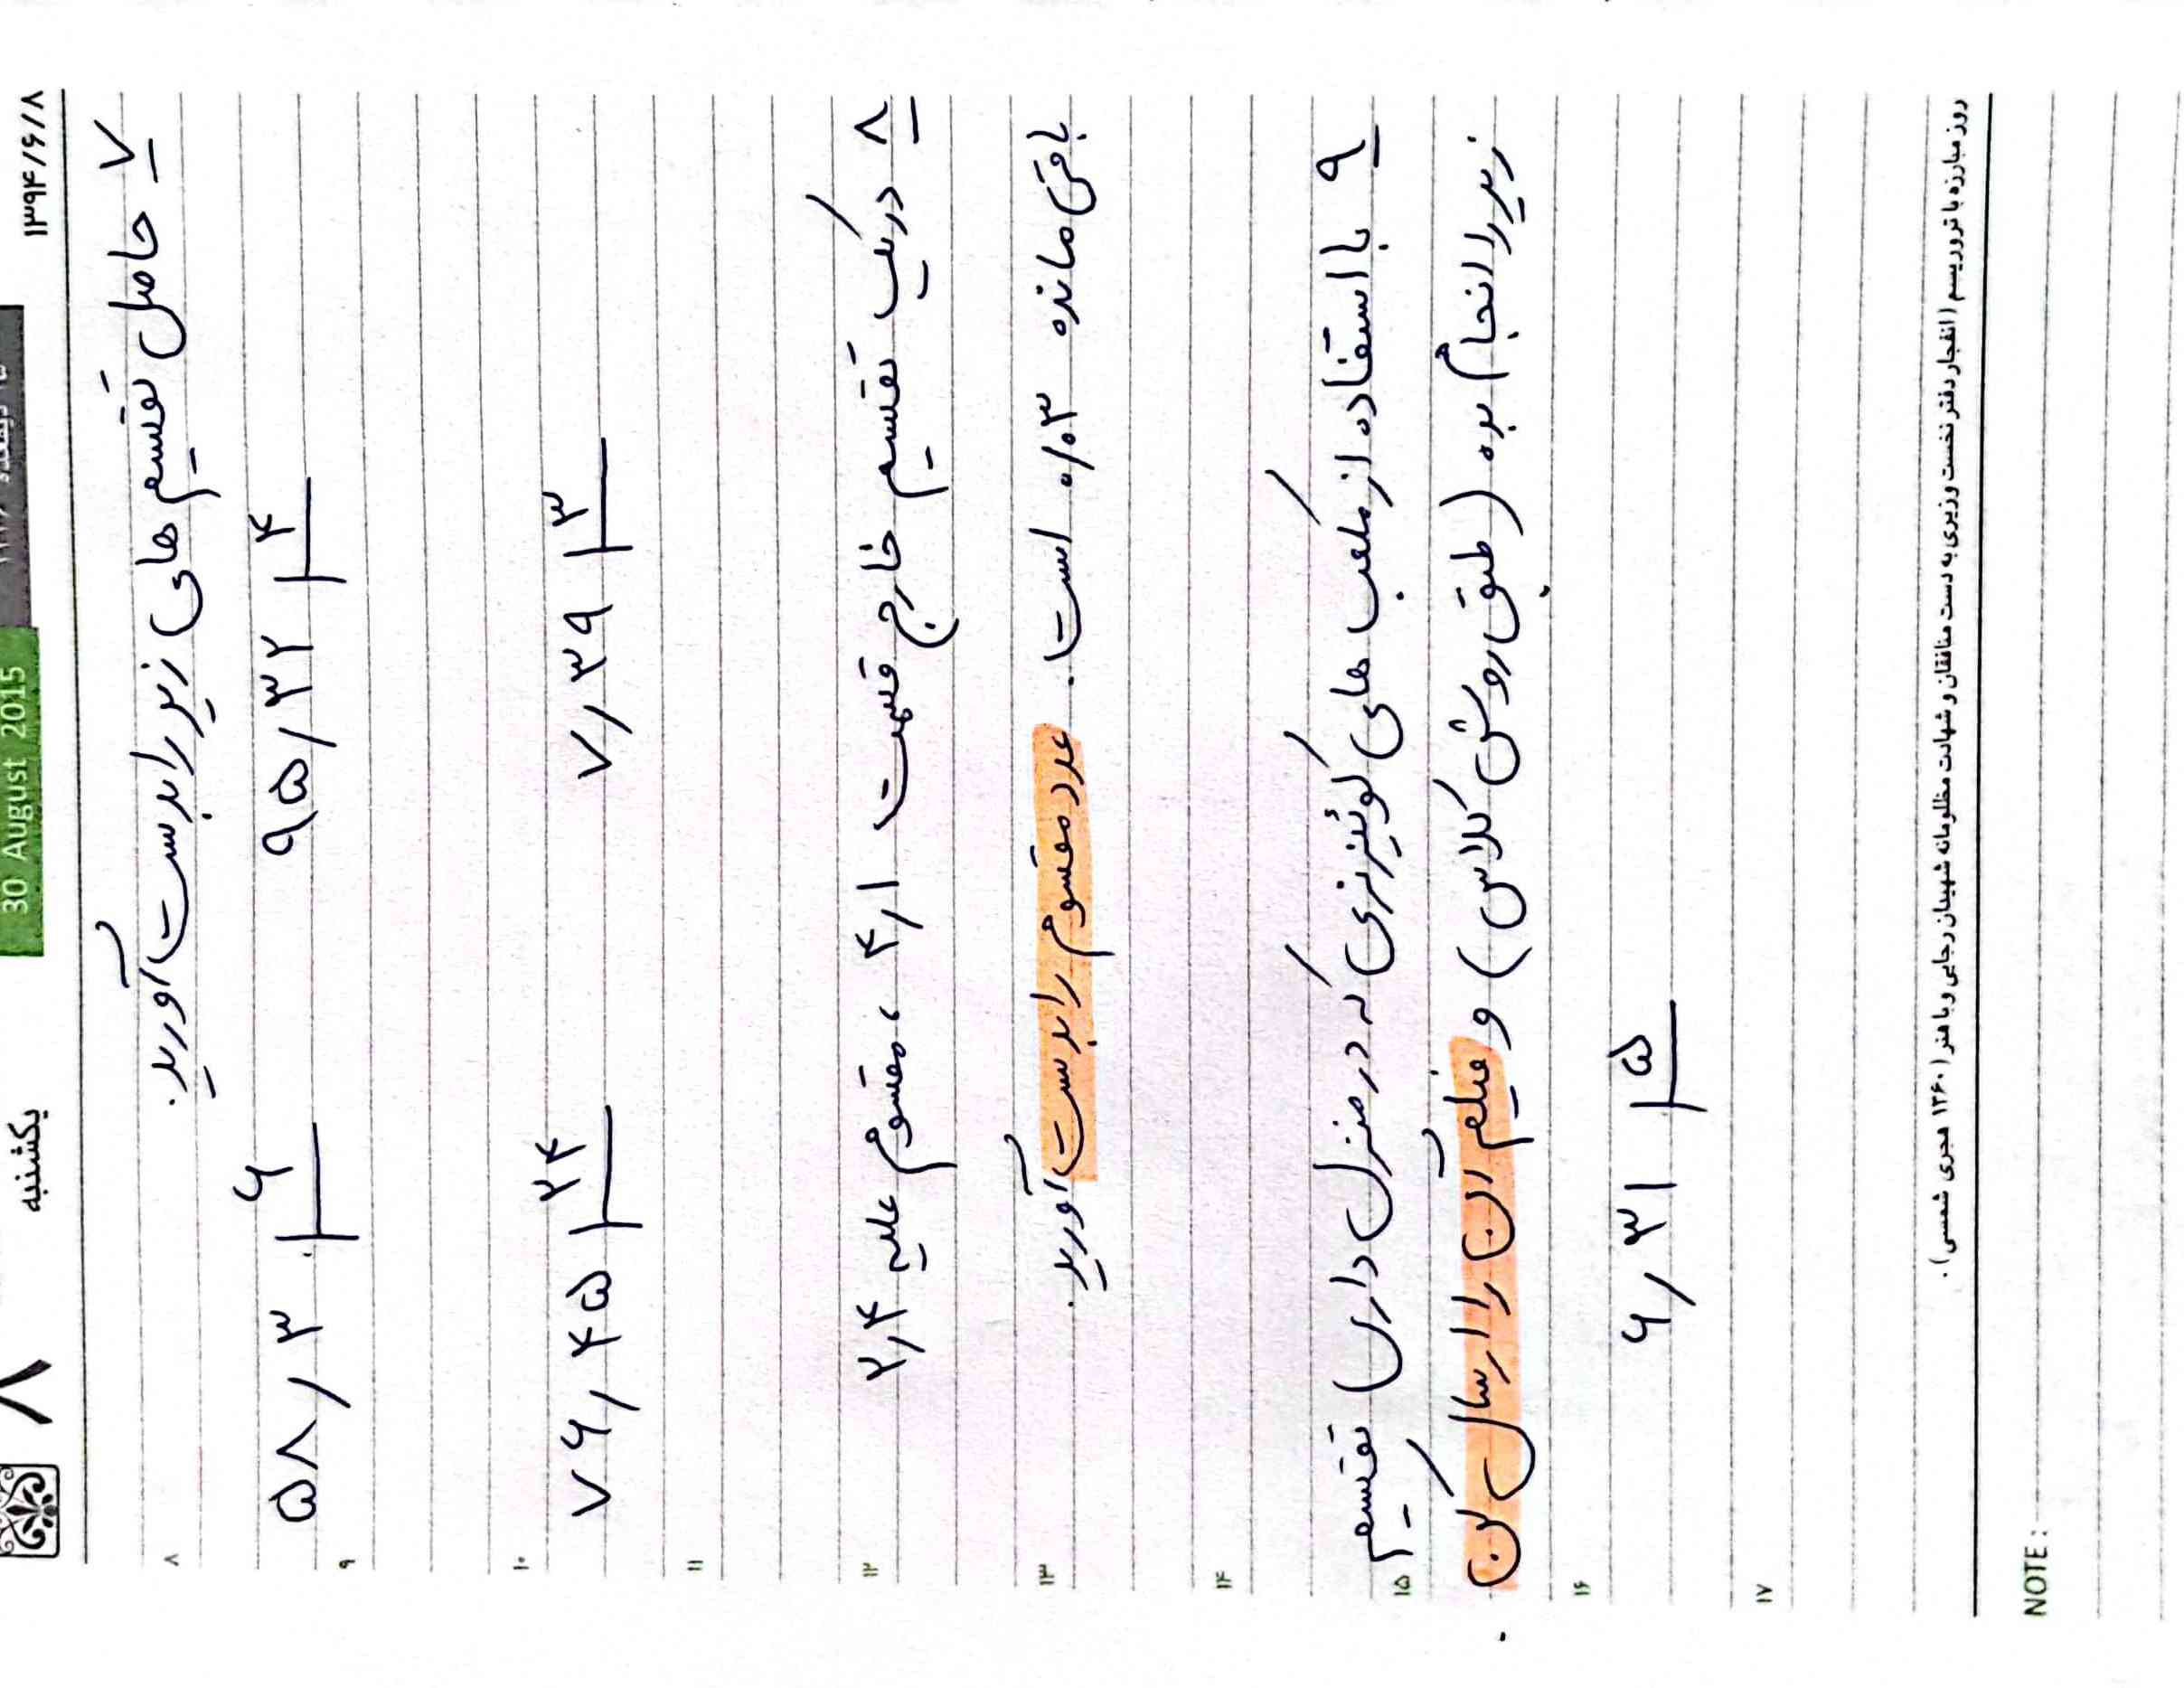 یکشنبه 30 August 2015 ۱۳۹۴/۶/۸
۸
۷ حاصل تقسیم های زیر را بدست آورید.
۵۸٫۳ ۶ ۹۵٫۳۲ ۴
۷۶٫۴۵ ۲۴ ۷٫۳۹ ۳
۸ در یک تقسیم خارج قسمت ۴٫۱ ، مقسوم علیه ۲٫۴
باقی مانده ۰٫۰۳ است. عدد مقسوم را بدست آورید.
۹ با استفاده از مکعب های کوئیزنری که در منزل داری تقسیم
زیر را انجام بده (طبق روش کلاس) و فیلم آن را ارسال کن.
۶٫۳۱ ۵
۸
۹
۱۰
۱۱
۱۲
۱۳
۱۴
۱۵
۱۶
۱۷
روز مبارزه با تروریسم (انفجار دفتر نخست وزیری به دست منافقان و شهادت مظلومانه شهیدان رجایی و باهنر (۱۳۶۰ هجری شمسی).
NOTE :